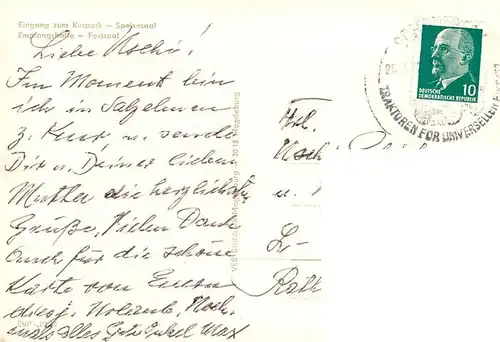 Eingang zum Kurpark – Speisesaal
Empfangshalle – Festsaal
Liebe Uschi!
Im Moment bin
ich in Salzelmen
z. Kur u. sende
Dir u. Deiner lieben
Mutter die herzlichsten
Grüße, Vielen Dank
auch für die schöne
Karte von Eurem
diesj. Urlaub, Noch-
mals alles Gute Onkel Max
Frl.
Uschi
u.
L-
Rath
10
DEUTSCHE
DEMOKRATISCHE REPUBLIK
TRAKTOREN FÜR UNIVERSELLEN